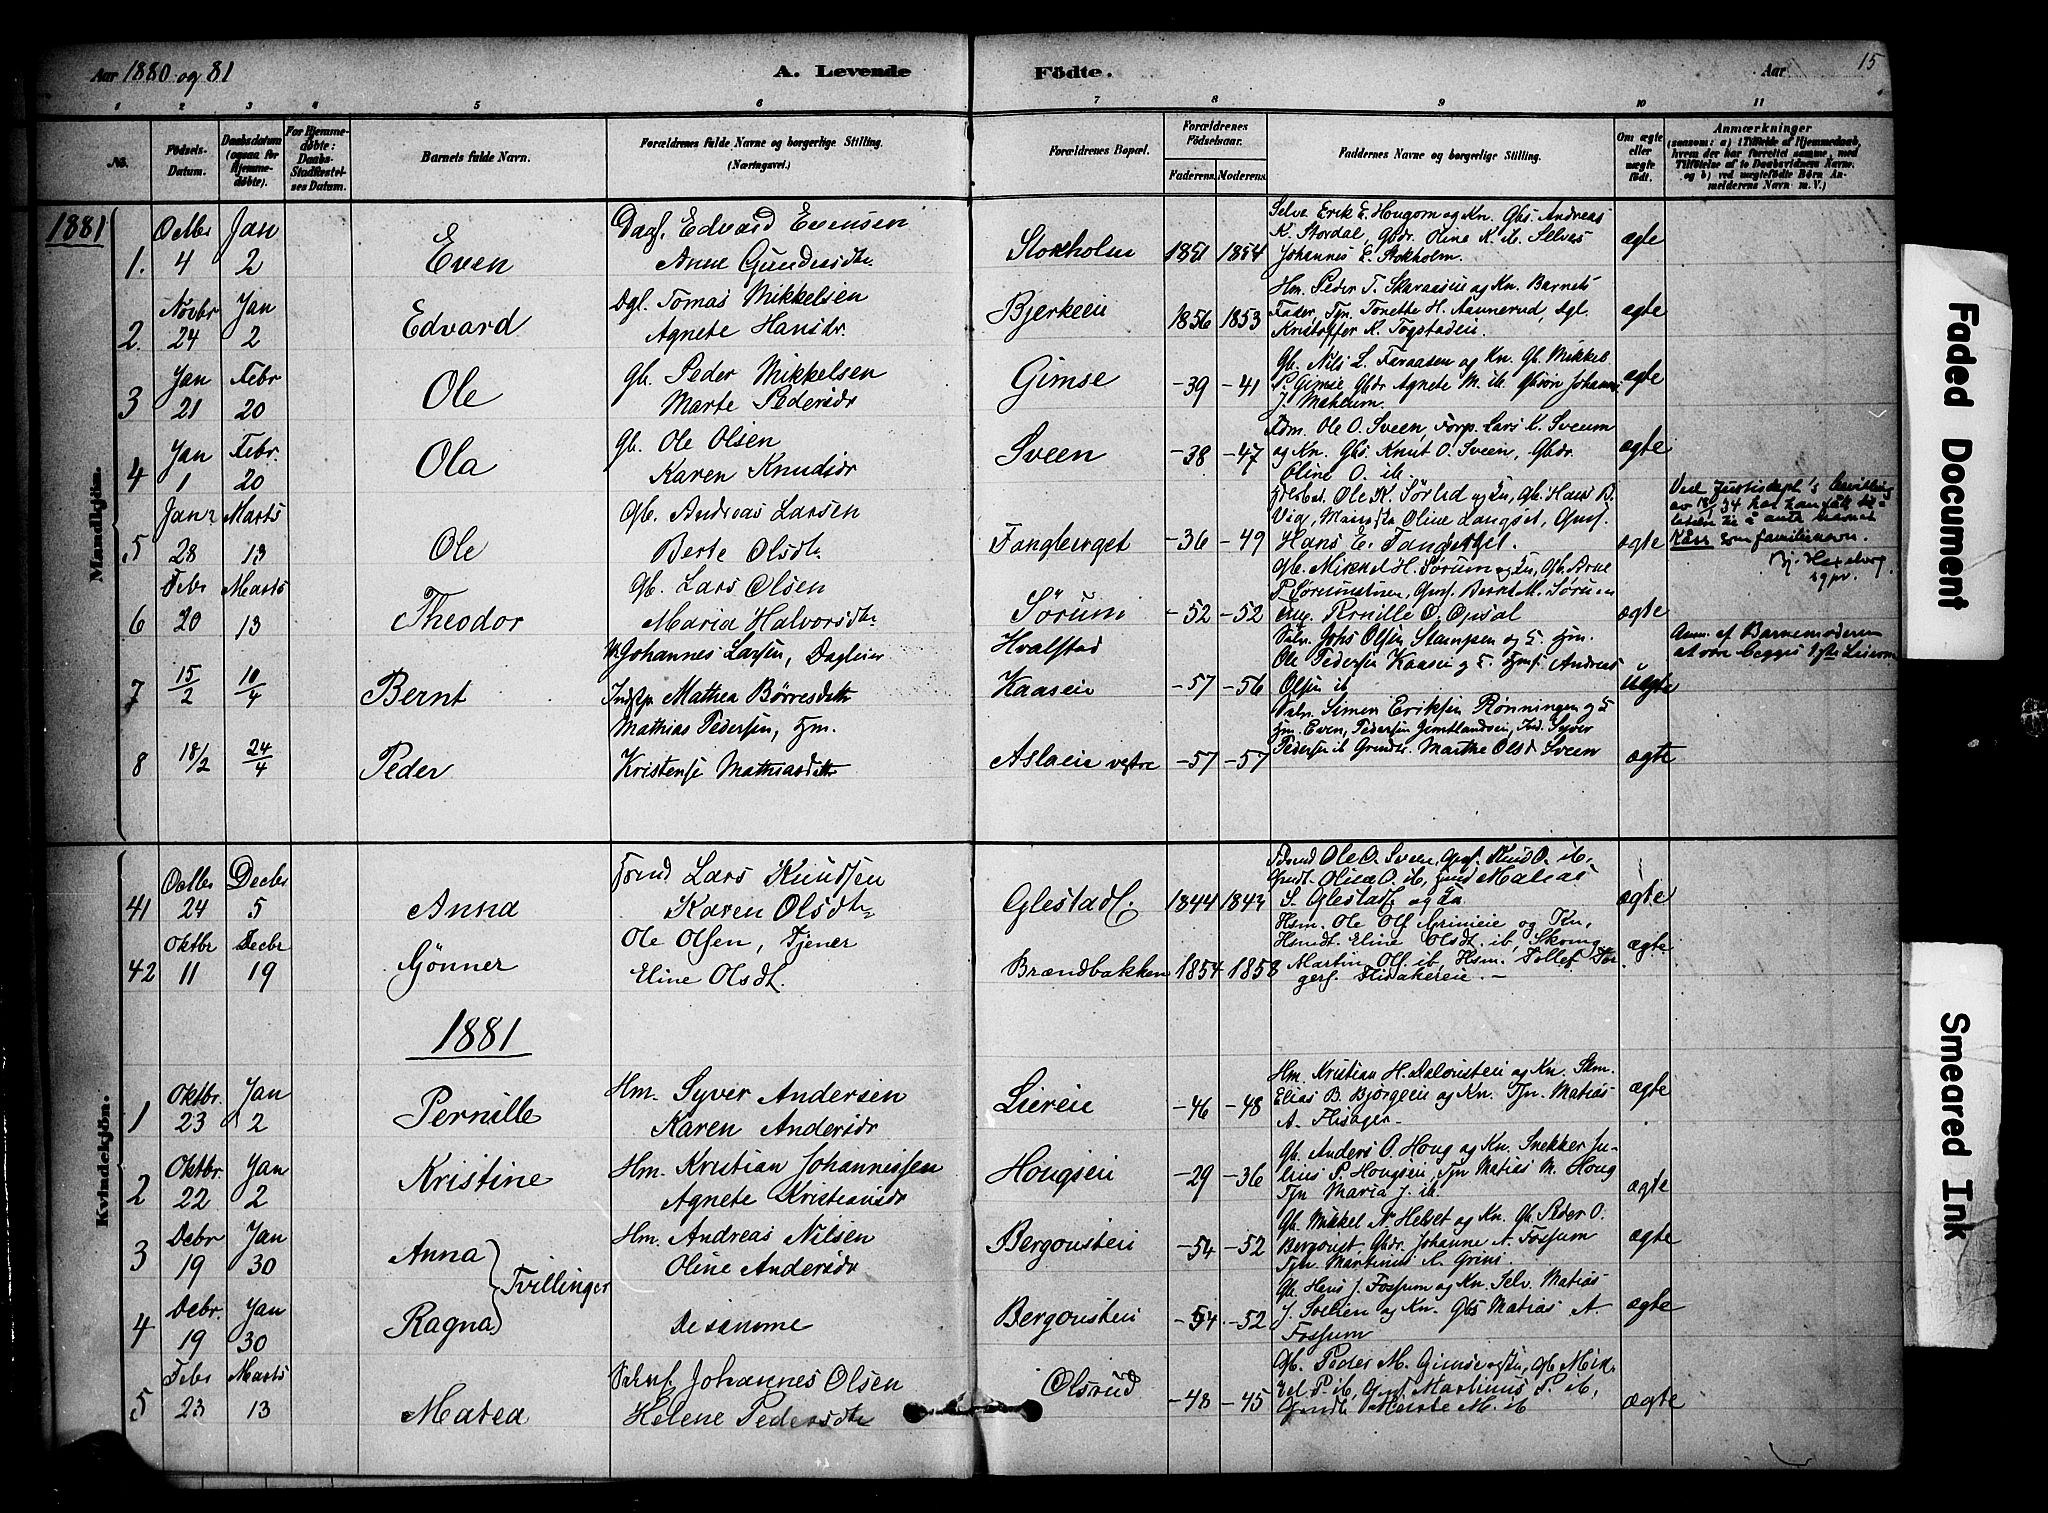 Aar 1880 og 81
A. Levende Födte.
Aar
15
1 2 3 4 5 6 7 8 9 10 11
No.
Födsels-Datum.
Daabsdatum (ogsaa for Hjemme-døbte).
For Hjemme-døbte: Daabs-Stadfæstelses Datum.
Barnets fulde Navn.
Forældrenes fulde Navne og borgerlige Stilling. (Næringsvei.)
Forældrenes Bopæl.
Forældrenes Födselsaar.
Faderens. Moderens.
Faddernes Navne og borgerlige Stilling.
Om ægte eller uægte födt.
Anmærkninger
(saasom: a) i Tilfælde af Hjemmedaab, hvem der har forrettet samme, med Tilföielse af to Daabsvidners Navne. og b) ved uægtefödte Börn Anmelderens Navn m. V.)
1881
Mandkjön.
1. Octbr 4 Jan 2 Even
Dagl. Edvard Evensen
Anne Gundersdtr
Stokholm 1851 1854
Selve Erik E. Hougom og Kn. Gbs. Andreas
K. Stordal, Gbdr. Oline K. ib. Selves
Johannes E. Stokholm.
ægte
2. Novbr 24 Jan 2 Edvard
Dgl. Tomas Mikkelsen
Agnete Hansdr.
Bjerkeeie 1856 1853
Hm. Peder T. Skaraaseie og Kn. Barnets
Fader, Tjn. Tonette H. Aannerud, dgl.
Kristoffer K. Togstadeie.
ægte
3 Jan 21 Febr 20 Ole
Gb. Peder Mikkelsen
Marte Pedersdr
Gimse -39 -41
Gb. Nils L. Feraasen og Kn. Gb. Mikkel
P. Gimse Gbdr Agnete M. ib. Gbsøn Johanns
J. Mæhlum.
ægte
4 Jan 1 Febr. 20 Ola
Gb. Ole Olsen
Karen Knudsdr
Sveen -38 -47
Fdm. Ole O. Sveen, Forp. Lars K. Sveum
og Kn. Gbs. Knut O. Sveen, Gbdr.
Oline O. ib.
ægte
5 Janr 28 Marts 13 Ole
Gb. Andreas Larsen
Berte Olsdtr
Fangberget -36 -49
Ole K. Sørlid og Fru, Gb. Hans B.
Vig, Oline Langset, Gmf.
Hans E. Fangberget.
ægte
Ved Justisdept.'s bevilling
av 18/1 34 har han fått til-
latelse til å anta navnet
Kåss som familienavn.
Bj. Hexeberg
sgpr.
6 Febr 20 Marts 13 Theodor
Gb. Lars Olsen
Maria Halvorsdtr
Sørum -52 -52
Gb. Mikkel H. Sørum og Fru, Gb. Arne
P. Gmf. Bernt M. Sørum
Pernille O. Opsal
ægte
7 15/2 10/4 Bernt
Johannes Larsen, Dagleier
Indst.p. Mathea Børresdatter
Hvalstad
Kaaseie -57 -56
Selv. Johs Olsen Stampen og Hm.
Ole Pedersen Kaaseie og Andreas
Olsen ib
uægte
Anm. af Barnemoderen
at være begges 1ste Leierm
8 18/2 24/4 Peder
Mathias Pedersen, Hm.
Kristense Mathiasdatter
Aslaeie vestre -57 -57
Selv. Simen Eriksen Rønningen og
Hm. Even Pedersen Syver
Pedersen ib Marthe Olsd Sveen
ægte
Kvindekjön.
41 Octbr 24 Decbr 5 Anna
Lars Knudsen
Karen Olsdtr
Glestad 1844 1843
Ole O. Sveen, Gmf. Knud O. ib.
Oline O. ib, Matias
S. Glestad og Fru
ægte
42 Oktbr 11 Decbr 19 Gönner
Ole Olsen, Tjener
Eline Olsdt.
Brændbakken 1854 1858
Hsm. Ole Ols. Grinieie og Kn,
Hsmdt. Eline Olsdt. ib,
Martin Ols. ib, Hsm. Tollef Tor-
gers. Flisakereie.
ægte
1881
1 Oktbr. 23 Jan 2 Pernille
Hm. Syver Andersen
Karen Andersdr
Liereie -46 -48
Hm. Kristian H. Dalousteie og Kn. Skm.
Elias B. Bjørgeeie og Kn. Tjn. Matias
A. Flisager.
ægte
2 Oktbr 22 Jan 2 Kristine
Hm. Kristian Johannessen
Agnete Kristiansdr
Hougseie -29 -36
Gb. Anders O. Houg og Kn. Snekker Ju-
lius P. Hougseie, Tjn Matias M. Houg
Tjn Maria J. ib.
ægte
3 Debr 19 Jan 30 Anna
Tvillinger
Hm. Andreas Nilsen
Oline Andersdr
Bergousteie -54 -52
Gb. Mikkel N. Helset og Kn. Gb. Peder O.
Bergoust, Gbdr. Johanne A. Fossum
Tjn. Martinus K. Grini.
ægte
4 Debr. 19 Jan 30 Ragna
De samme
Bergousteie -54 -52
Gb. Hans J. Fossum og Kn. Selv. Matias
J. Svelien og Kn. Gbs Matias A
Fossum
ægte
5 Febr 23 Marts 13 Matea
Johannes Olsen
Helene Pedersdtr
Olsrud -48 -45
Gb. Peder M. Gimse og Fru, Gb. Mik-
kel P. ib, Gmf. Martinus P. ib,
Marte M. ib
ægte
Faded Document
Smeared Ink